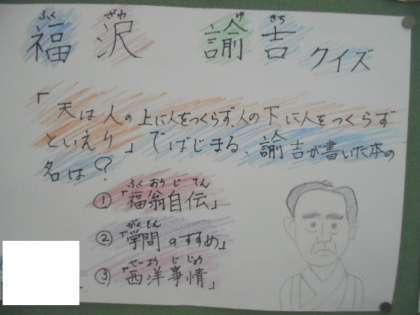 ふく ざわ ゆ きち
福沢 諭吉 クイズ
「天は人の上に人をつくらず、人の下に人をつくらず
といえり」ではじまる、諭吉が書いた本の
名は?
ふく おう じ でん
①「福翁自伝」
がく もん
②「学問のすすめ」
せい よう じ じょう
③「西洋事情」